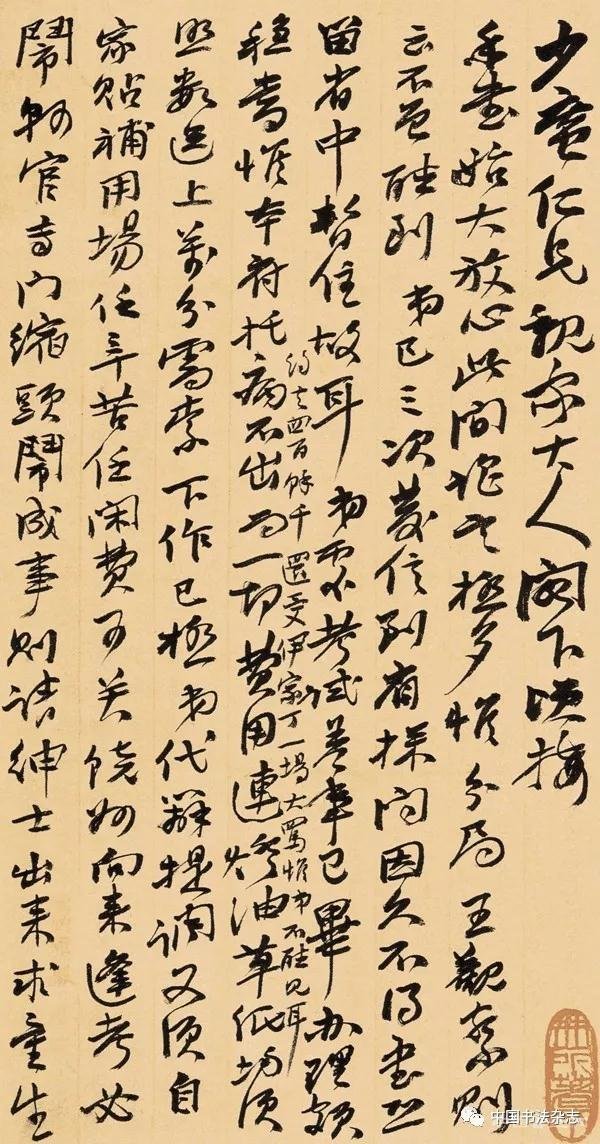 少蛮仁兄親家大人閣下頃接
手書始大放心此間謡言極多惟分局王觀察則
云不 到 弟已三次發信到省探问因久不得書
留省中暫住故耳 弟處考试差事已畢办理頗
穩當惟本府托病不出而一切費用連燈油草纸均須
約去四百餘千 還受伊家丁一場大罵惟弟不 見耳
照數送上萬分需索下作已極弟代辦提調又須自
家貼補用場任辛苦任閑費可笑饒州向来逢考必
鬧州官寺内縮頭鬧成事则請紳士出来求童生
中国书法杂志